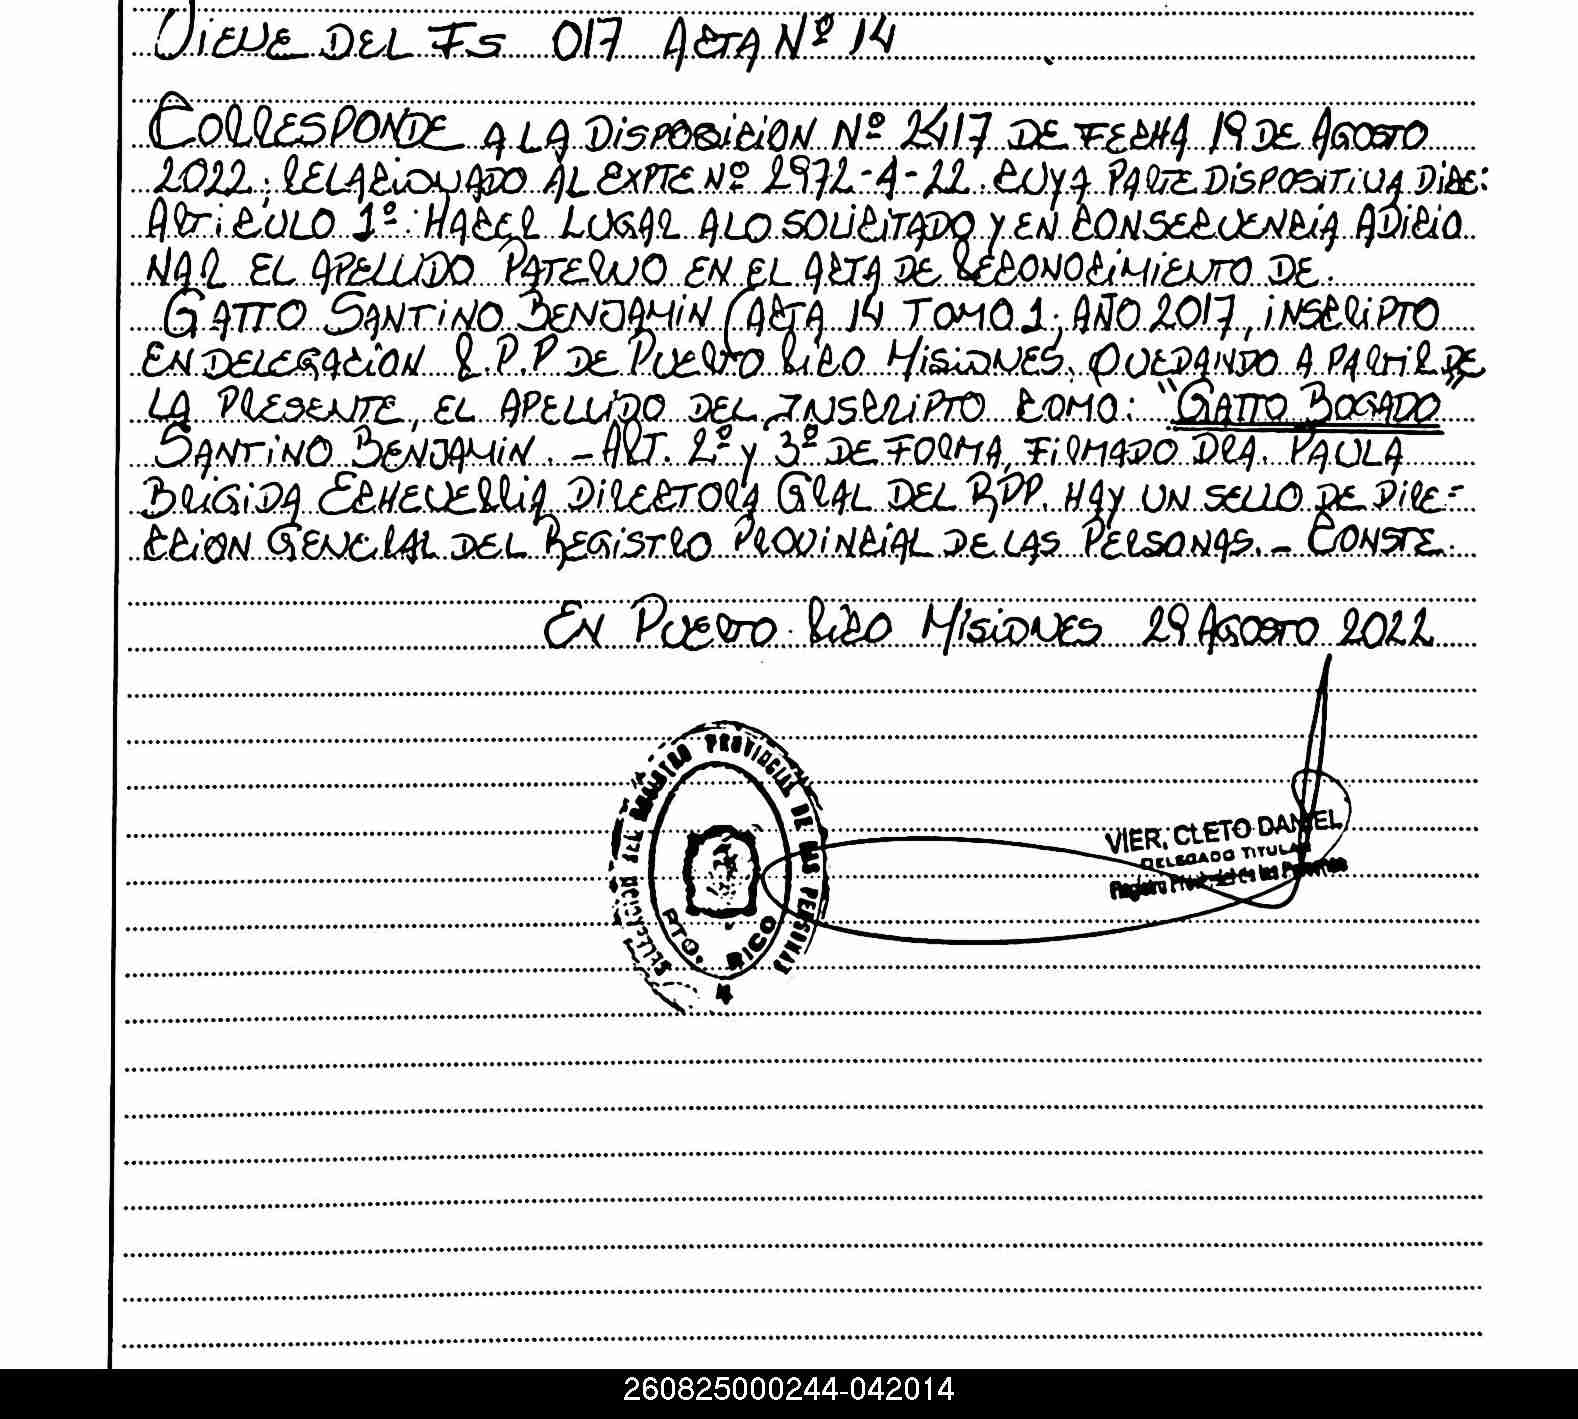 VIENE DEL FS 017 ACTA Nº 14
CORRESPONDE A LA DISPOSICION Nº 2417 DE FECHA 19 DE AGOSTO
2022; RELACIONADO AL EXPTE Nº 2972-A-22. CUYA PARTE DISPOSITIVA DICE:
ARTICULO 1º: HACER LUGAR A LO SOLICITADO Y EN CONSECUENCIA ADICIO
NAR EL APELLIDO PATERNO EN EL ACTA DE RECONOCIMIENTO DE.
GATTO SANTINO BENJAMIN (ACTA 14 TOMO 1; AÑO 2017, INSCRIPTO
EN DELEGACION R.P.P DE PUERTO RICO MISIONES. QUEDANDO A PARTIR DE
LA PRESENTE, EL APELLIDO DEL INSCRIPTO COMO: "GATTO BOGADO"
SANTINO BENJAMIN. - ART. 2º Y 3º DE FORMA, FIRMADO DRA. PAULA
BRIGIDA ECHEVERRIA DIRECTORA GRAL DEL RPP. HAY UN SELLO DE DIRE=
CCION GENERAL DEL REGISTRO PROVINCIAL DE LAS PERSONAS. - CONSTE.
EN PUERTO RICO MISIONES 29 AGOSTO 2022
DELEGACION DEL REGISTRO PROVINCIAL DE LAS PERSONAS
PTO. RICO
VIER, CLETO DANIEL
DELEGADO TITULAR
Registro Provincial de las Personas
260825000244-042014